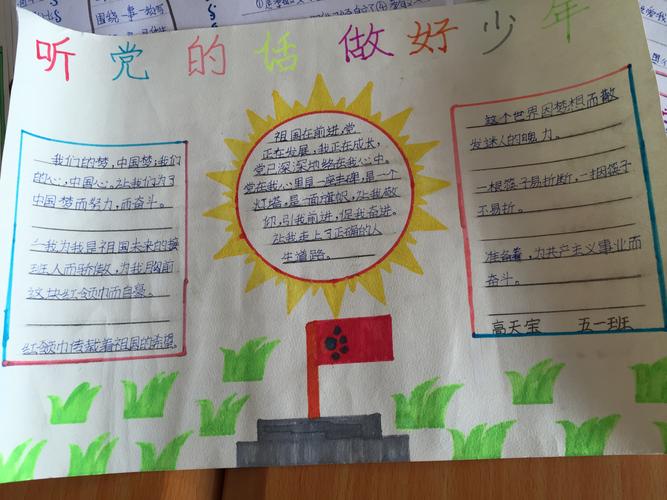 听党的话 做好少年
我们的梦,中国梦,我们
的心,中国心,让我们为了
中国梦而努力,而奋斗。
我为我是祖国未来的接
班人而骄傲,为我胸前
这块红领巾而自豪。
红领巾传载着祖国的希望
祖国在前进,党
正在发展,我正在成长,
党已深深地络在我心中。
党在我心里是一座丰碑,是一个
灯塔,是一面旗帜,让我敬
仰,引我前进,促我奋进。
让我走上了正确的人
生道路。
这个世界因梦想而散
发迷人的魄力。
一根筷子易折断,一把筷子
不易折。
准备着,为共产主义事业而
奋斗。
高天宝 五一班
围绕一事一物写